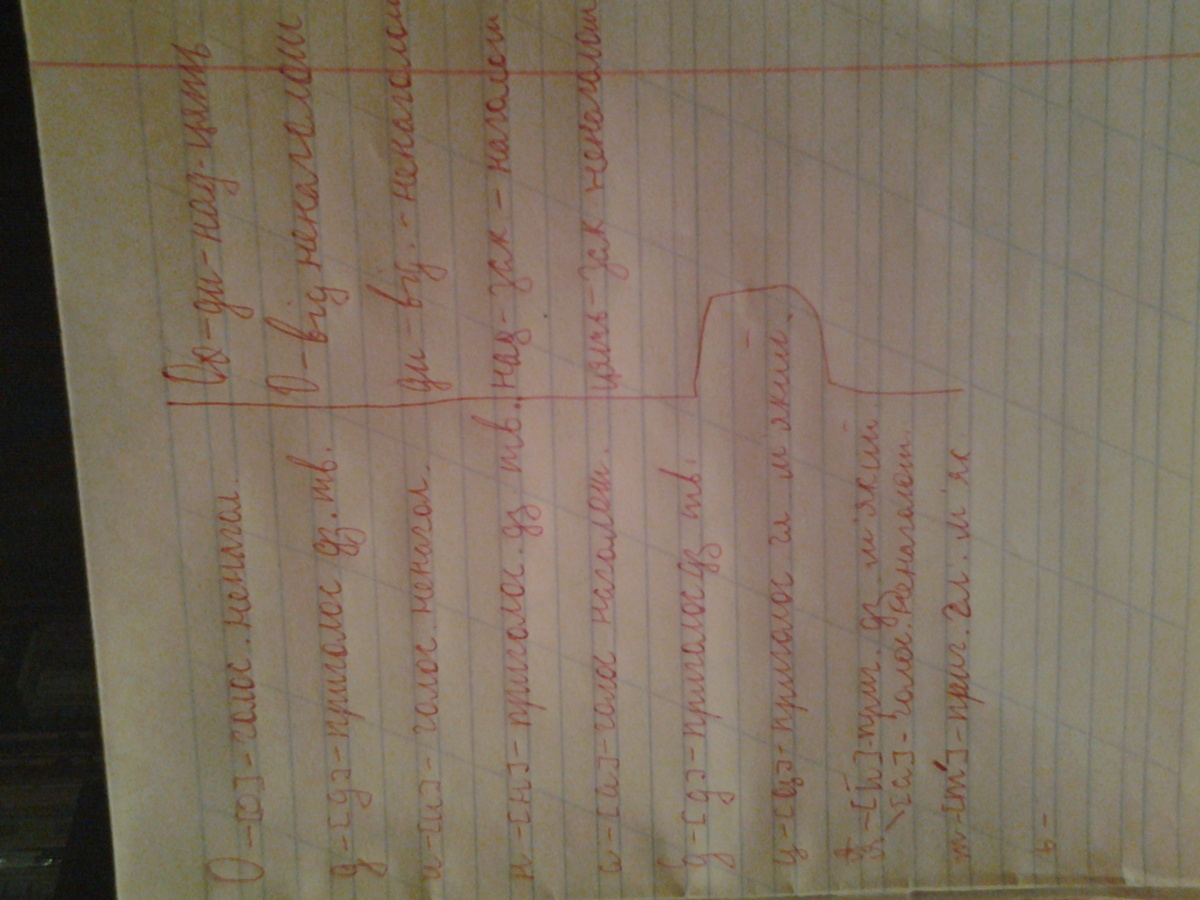 О - [о] - голос. ненагол.
д - [д] - приголос дз. тв.
и - [и] - голос. ненагол.
н - [н] - приголос. дз тв.
а - [а] - голос наголош.
д - [д] - приголос дз тв.
ц - [ц] - приголос гл м'який.
я - [й] - приг. дз м'який
[а] - голос. Ненаголош.
т - [т'] - приг. гл. м'як
ь -
Оо - ди - над - цять
О - від, ненаголош
ди - від. - ненаголош
над - зак - наголош
цять - зак ненаголош